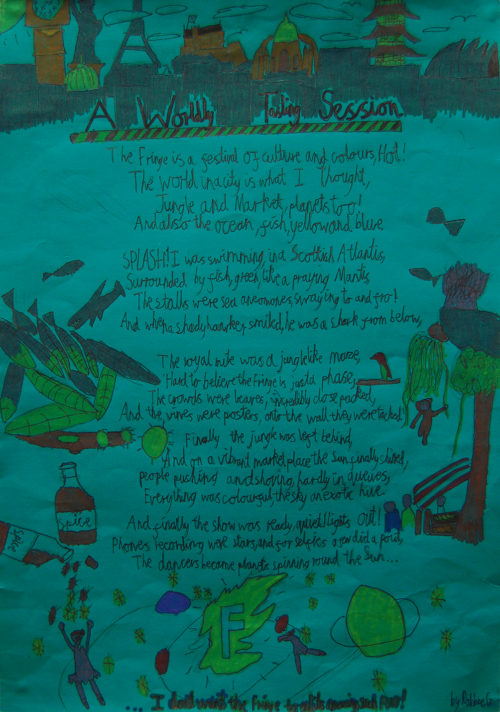 A Worldly Tasting Session
The Fringe is a festival of culture and colours, Hot!
The world in a city is what I thought,
Jungle and Market, planets too!
And also the ocean, fish, yellow and blue.
SPLASH! I was swimming in a Scottish Atlantis,
Surrounded by fish, green like a praying Mantis
The stalls were sea anemones, swaying to and fro!
And when a shady hawker smiled, he was a shark from below,
The royal mile was a jungle like maze,
Hard to believe the Fringe is just a phase,
The crowds were leaves, incredibly close packed,
And the vines were posters, onto the wall they were tacked.
Finally the jungle was left behind,
And on a vibrant market place the sun finally shined,
people pushing and shoving, hardly in queues,
Everything was colourful, the sky an exotic hue.
And finally the show was ready, quiet! lights out!
Phones recording were stars, and for selfies a few did a pout,
The dancers became planets spinning round the sun...
Spice
Spice
F
... I don't want the Fringe to end its amazing such fun!
by